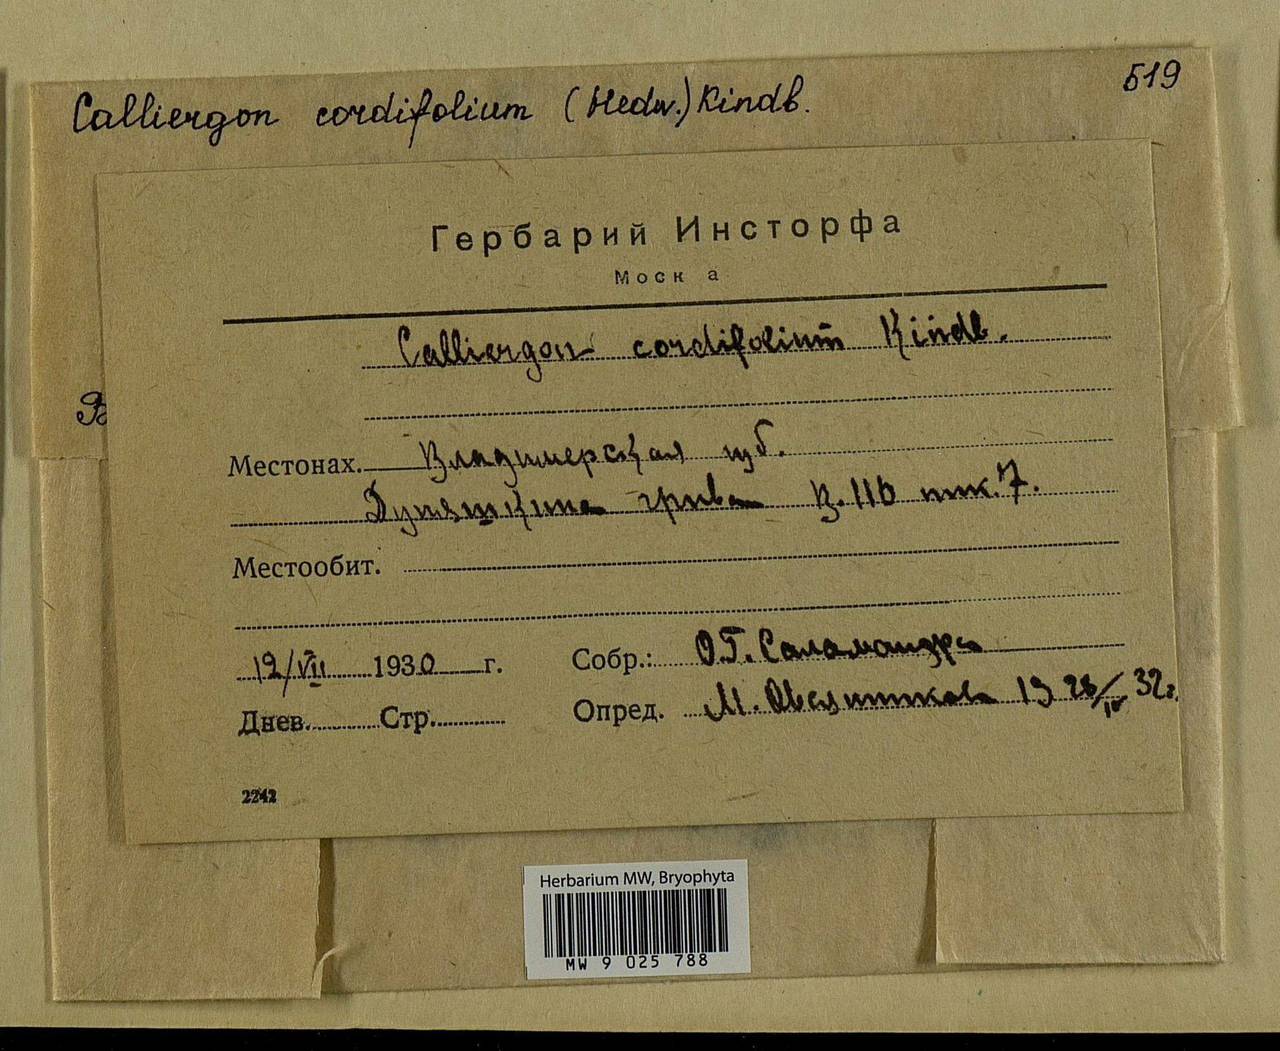 Calliergon cordifolium (Hedw.) Kindb.
519
Гербарий Инсторфа
Моск а
Calliergon cordifolium Kindb.
Местонах. Владимерская губ.
Дуняшкина грива В. 11б пик. 7.
Местообит.
19/VII 1930 г. Собр.: О.Г. Саламандра
Днев. Стр. Опред. М. Овсянникова 19 28/IV 32 г.
2242
Herbarium MW, Bryophyta
MW 9 025 788